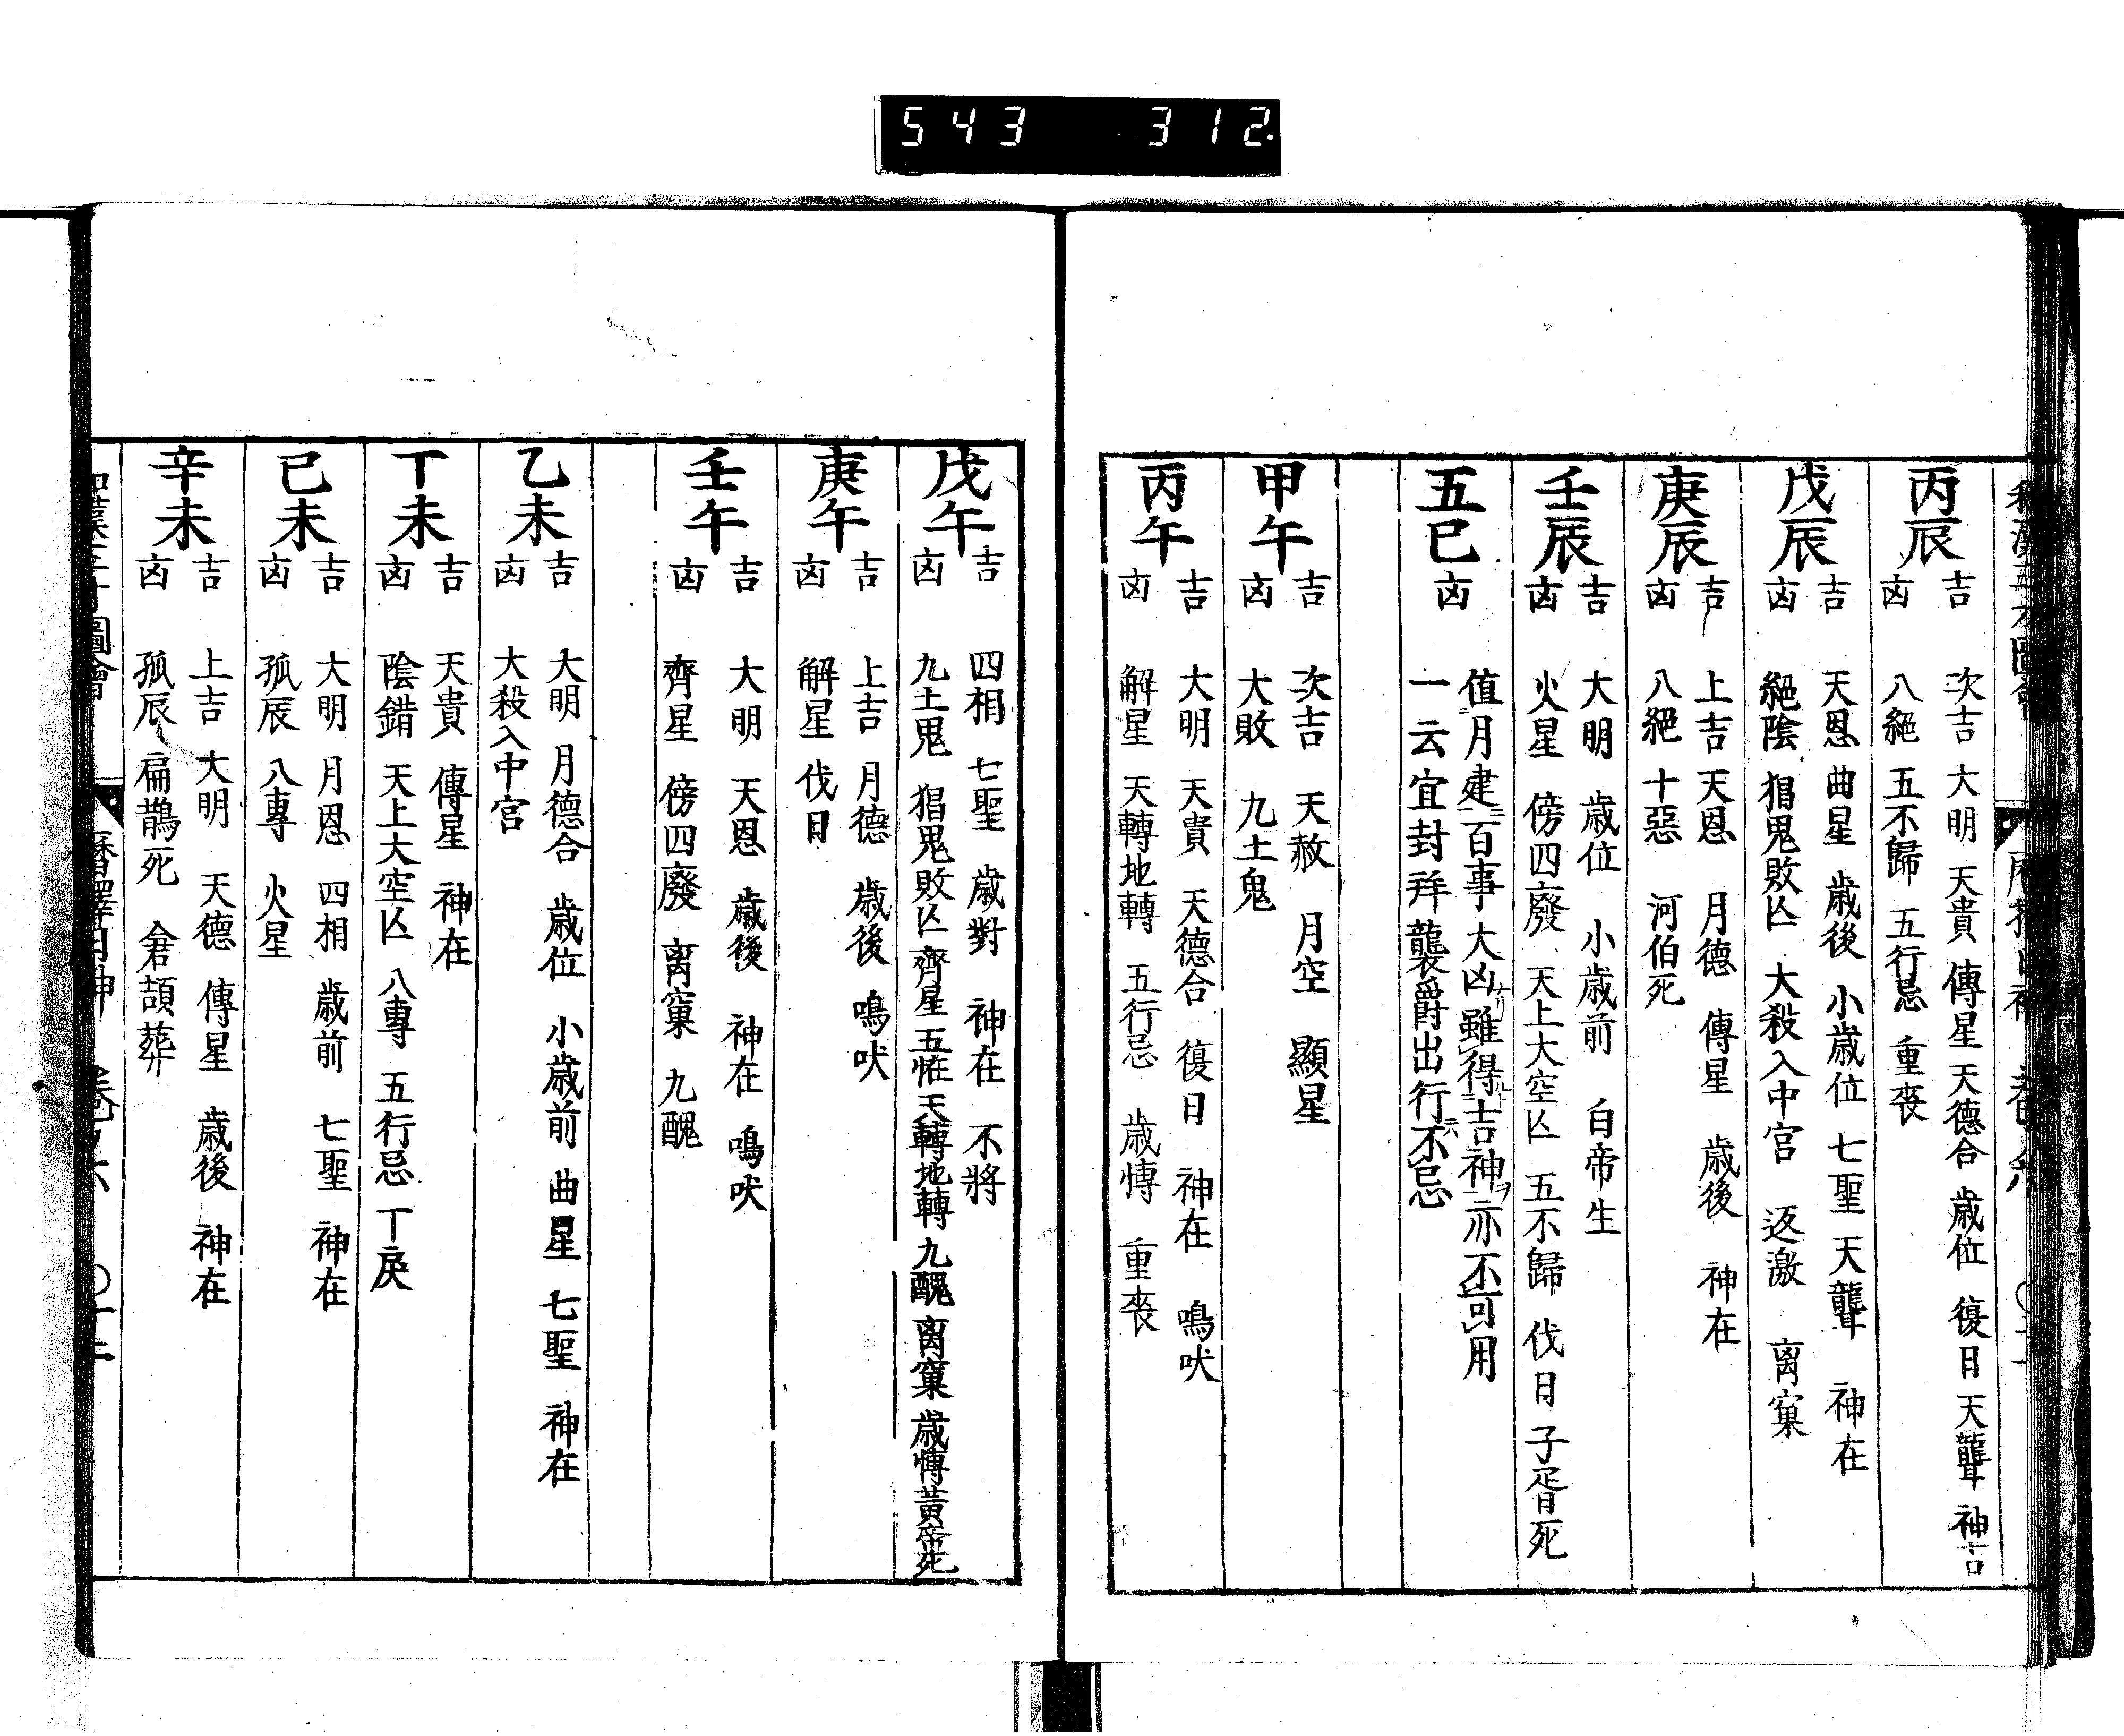 543 312
丙辰
吉 次吉 大明 天貴 傳星 天德合 歳位 復日 天聾 神吉
凶 八絕 五不歸 五行忌 重䘮
戊辰
吉 天恩 曲星 歳後 小歳位 七聖 天聾 神在
凶 絕陰 猖鬼敗亾 大殺入中宮 返激 离窠
庚辰
吉 上吉 天恩 月德 傳星 歳後 神在
凶 八絕 十惡 河伯死
壬辰
吉 大明 歳位 小歳前 白帝生
凶 火星 傍四廢 天上大空亾 五不歸 伐日 子胥死
五巳
凶 值月建百事大凶雖得吉神亦不可用
一云宜封拜襲爵出行不忌
甲午
吉 次吉 天赦 月空 顯星
凶 大敗 九土鬼
丙午
吉 大明 天貴 天德合 復日 神在 鳴吠
凶 解星 天轉地轉 五行忌 歳慱 重䘮
戊午
吉 四相 七聖 歳對 神在 不將
凶 九土鬼 猖鬼敗亾 齊星 五恠 天轉地轉 九醜 离窠 歳慱 黃帝死
庚午
吉 上吉 月德 歳後 鳴吠
凶 解星 伐日
壬午
吉 大明 天恩 歳後 神在 鳴吠
凶 齊星 傍四廢 离窠 九醜
乙未
吉 大明 月德合 歳位 小歳前 曲星 七聖 神在
凶 大殺入中宮
丁未
吉 天貴 傳星 神在
凶 陰錯 天上大空亾 八專 五行忌 丁戾
已未
吉 大明 月恩 四相 歳前 七聖 神在
凶 孤辰 八專 火星
辛未
吉 上吉 大明 天德 傳星 歳後 神在
凶 孤辰 扁鵲死 倉頡葬